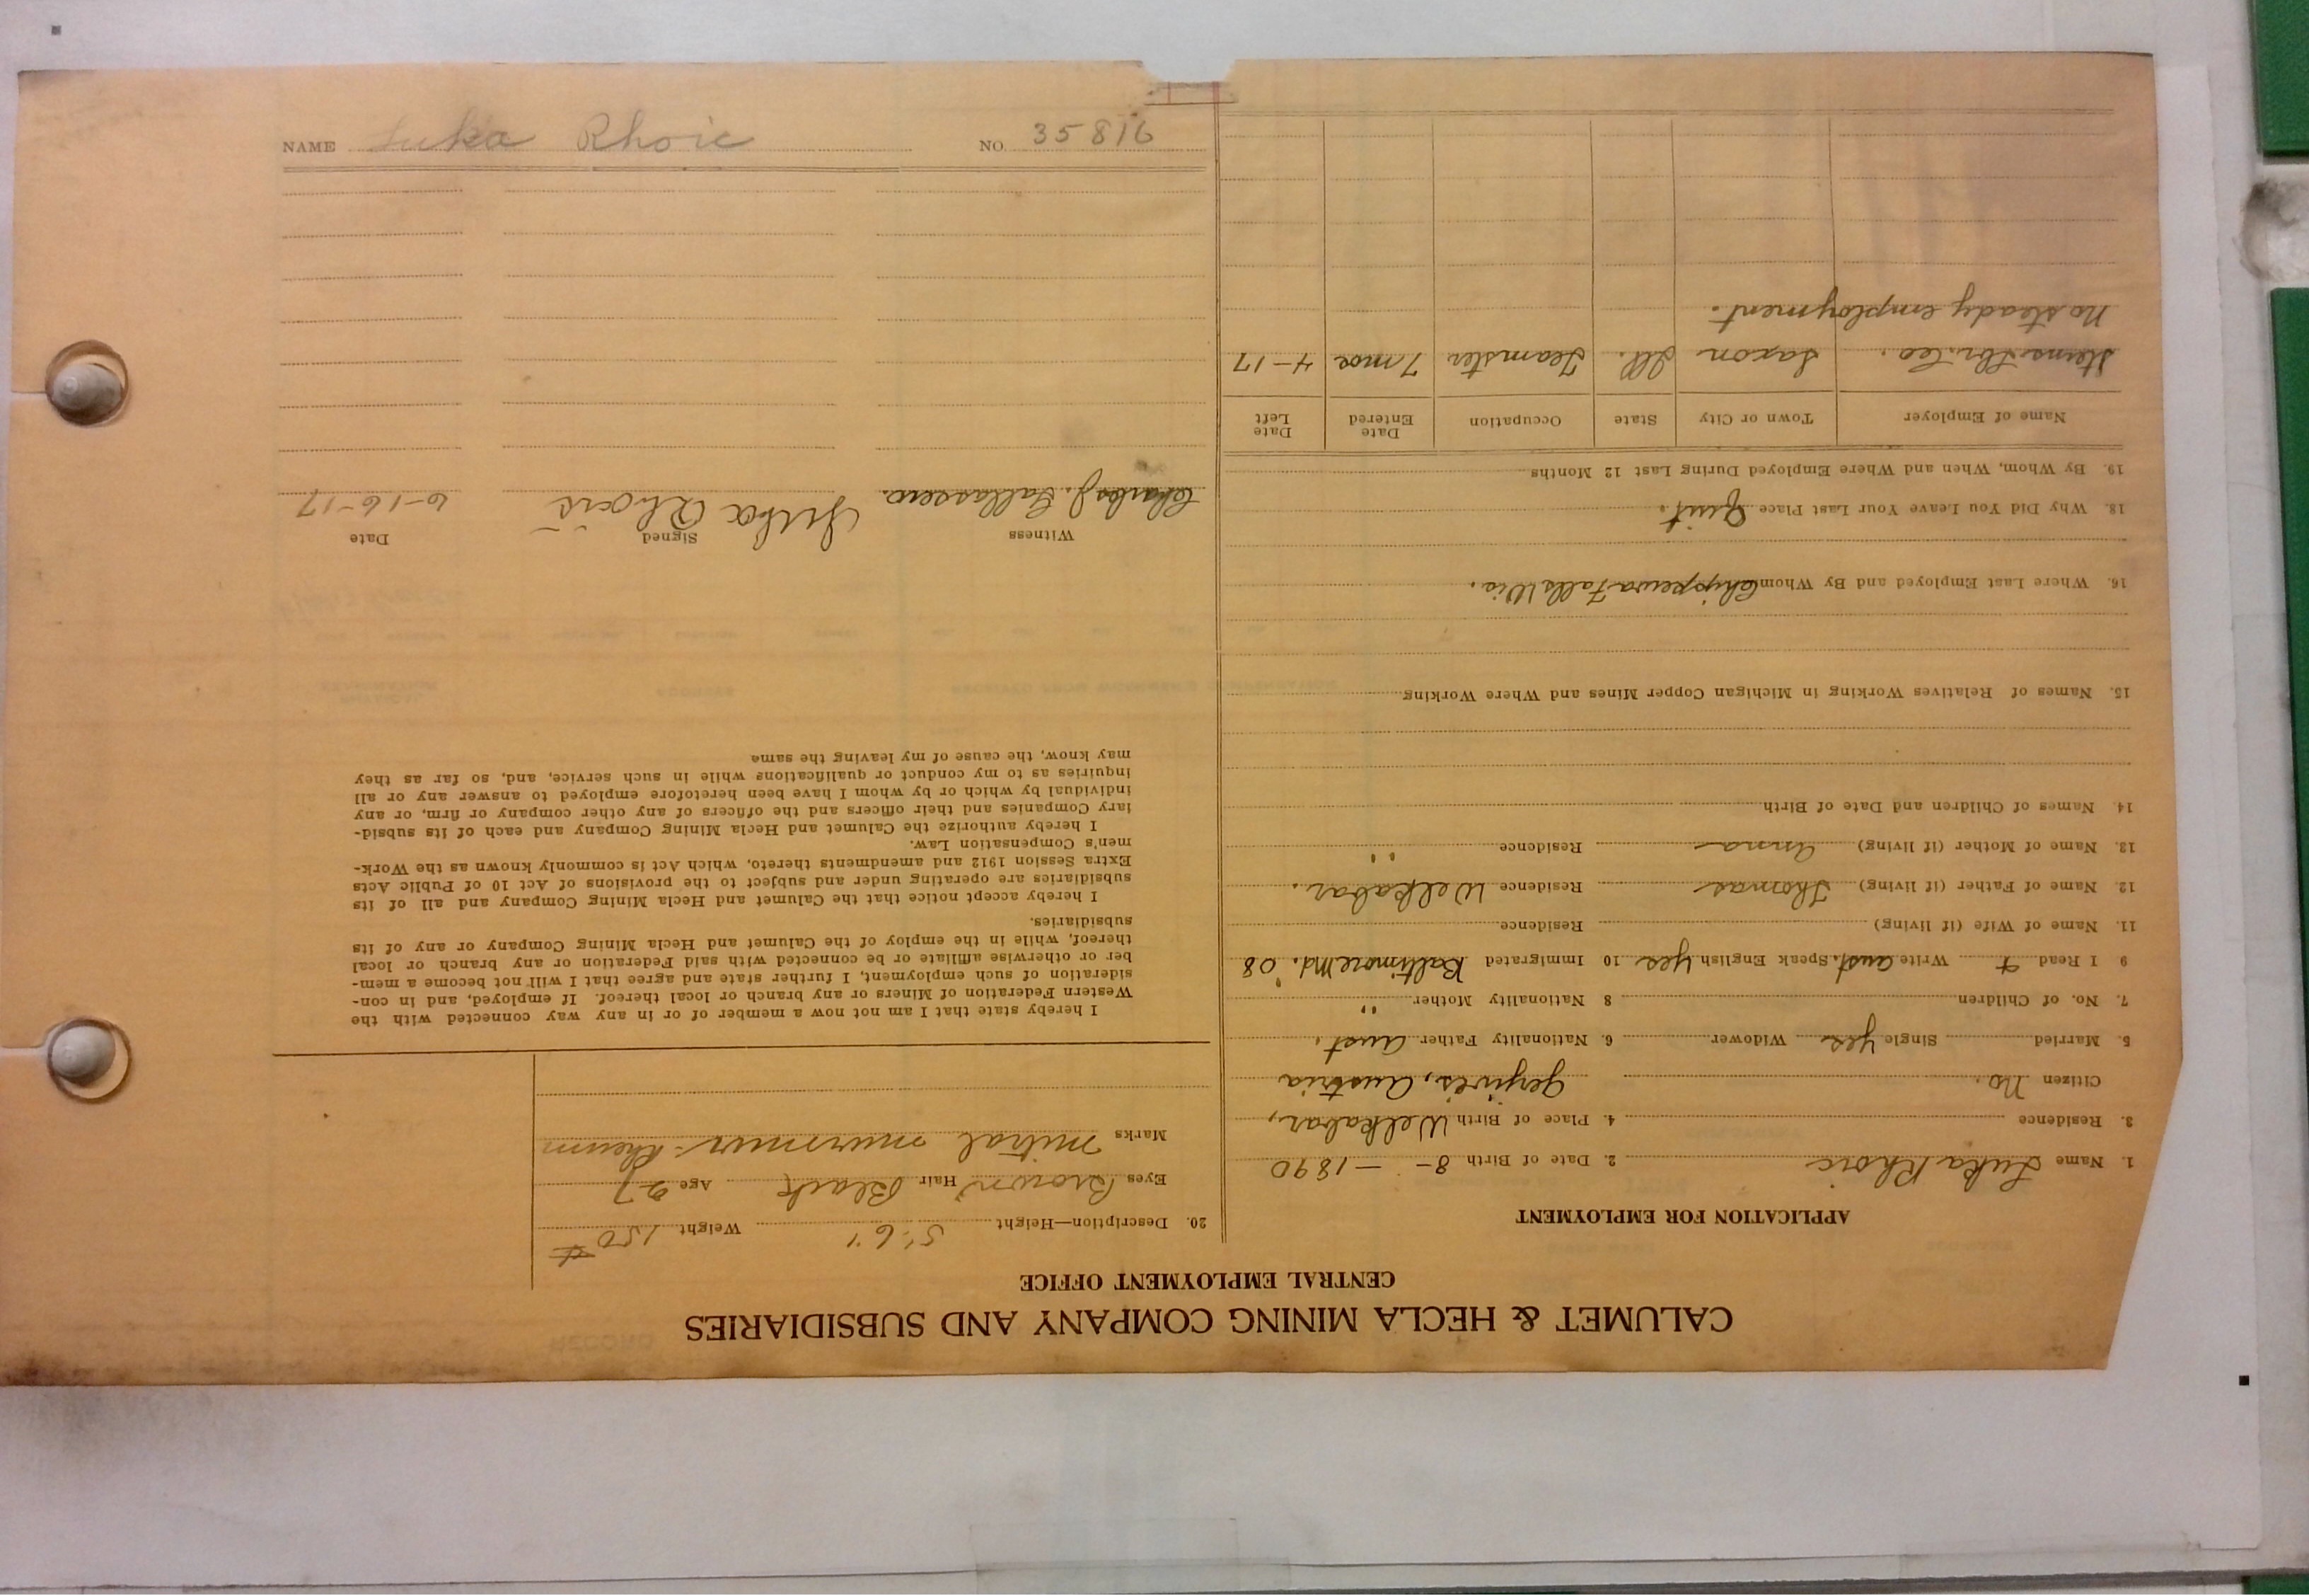 CALUMET & HECLA MINING COMPANY AND SUBSIDIARIES
CENTRAL EMPLOYMENT OFFICE
APPLICATION FOR EMPLOYMENT
1. Name Luka Rhoic 2. Date of Birth 8- – 1890
3. Residence 4. Place of Birth Welkabar,
Citizen No. Austria
5. Married Single Yes Widower 6. Nationality Father Aust.
7. No. of Children 8 Nationality Mother "
9 I Read & Write Aust. Speak English Yes 10 Immigrated Baltimore Md. '08
11. Name of Wife (if living) Residence
12. Name of Father (if living) Thomas Residence Welkabar.
13. Name of Mother (if living) Anna Residence "
14. Names of Children and Date of Birth
15. Names of Relatives Working in Michigan Copper Mines and Where Working
16. Where Last Employed and By Whom Chippewa Falls Wis.
18. Why Did You Leave Your Last Place Quit.
19. By Whom, When and Where Employed During Last 12 Months
Name of Employer Town or City State Occupation Date Entered Date Left
Lbr. Co. Saxon Ill. Teamster 7 mos 4-17
No steady employment.
20. Description—Height 5' 6" Weight 150 #
Eyes Brown Hair Black Age 27
Marks Mitral murmur - Rheum
I hereby state that I am not now a member of or in any way connected with the
Western Federation of Miners or any branch or local thereof. If employed, and in con-
sideration of such employment, I further state and agree that I will not become a mem-
ber or otherwise affiliate or be connected with said Federation or any branch or local
thereof, while in the employ of the Calumet and Hecla Mining Company or any of its
subsidiaries.
I hereby accept notice that the Calumet and Hecla Mining Company and all of its
subsidiaries are operating under and subject to the provisions of Act 10 of Public Acts
Extra Session 1912 and amendments thereto, which Act is commonly known as the Work-
men's Compensation Law.
I hereby authorize the Calumet and Hecla Mining Company and each of its subsid-
iary Companies and their officers and the officers of any other company or firm, or any
individual by which or by whom I have been heretofore employed to answer any or all
inquiries as to my conduct or qualifications while in such service, and, so far as they
may know, the cause of my leaving the same
Witness Signed Date
Charles J. Gallassero. Luka Rhoic 6-16-17
NAME Luka Rhoic NO. 35816